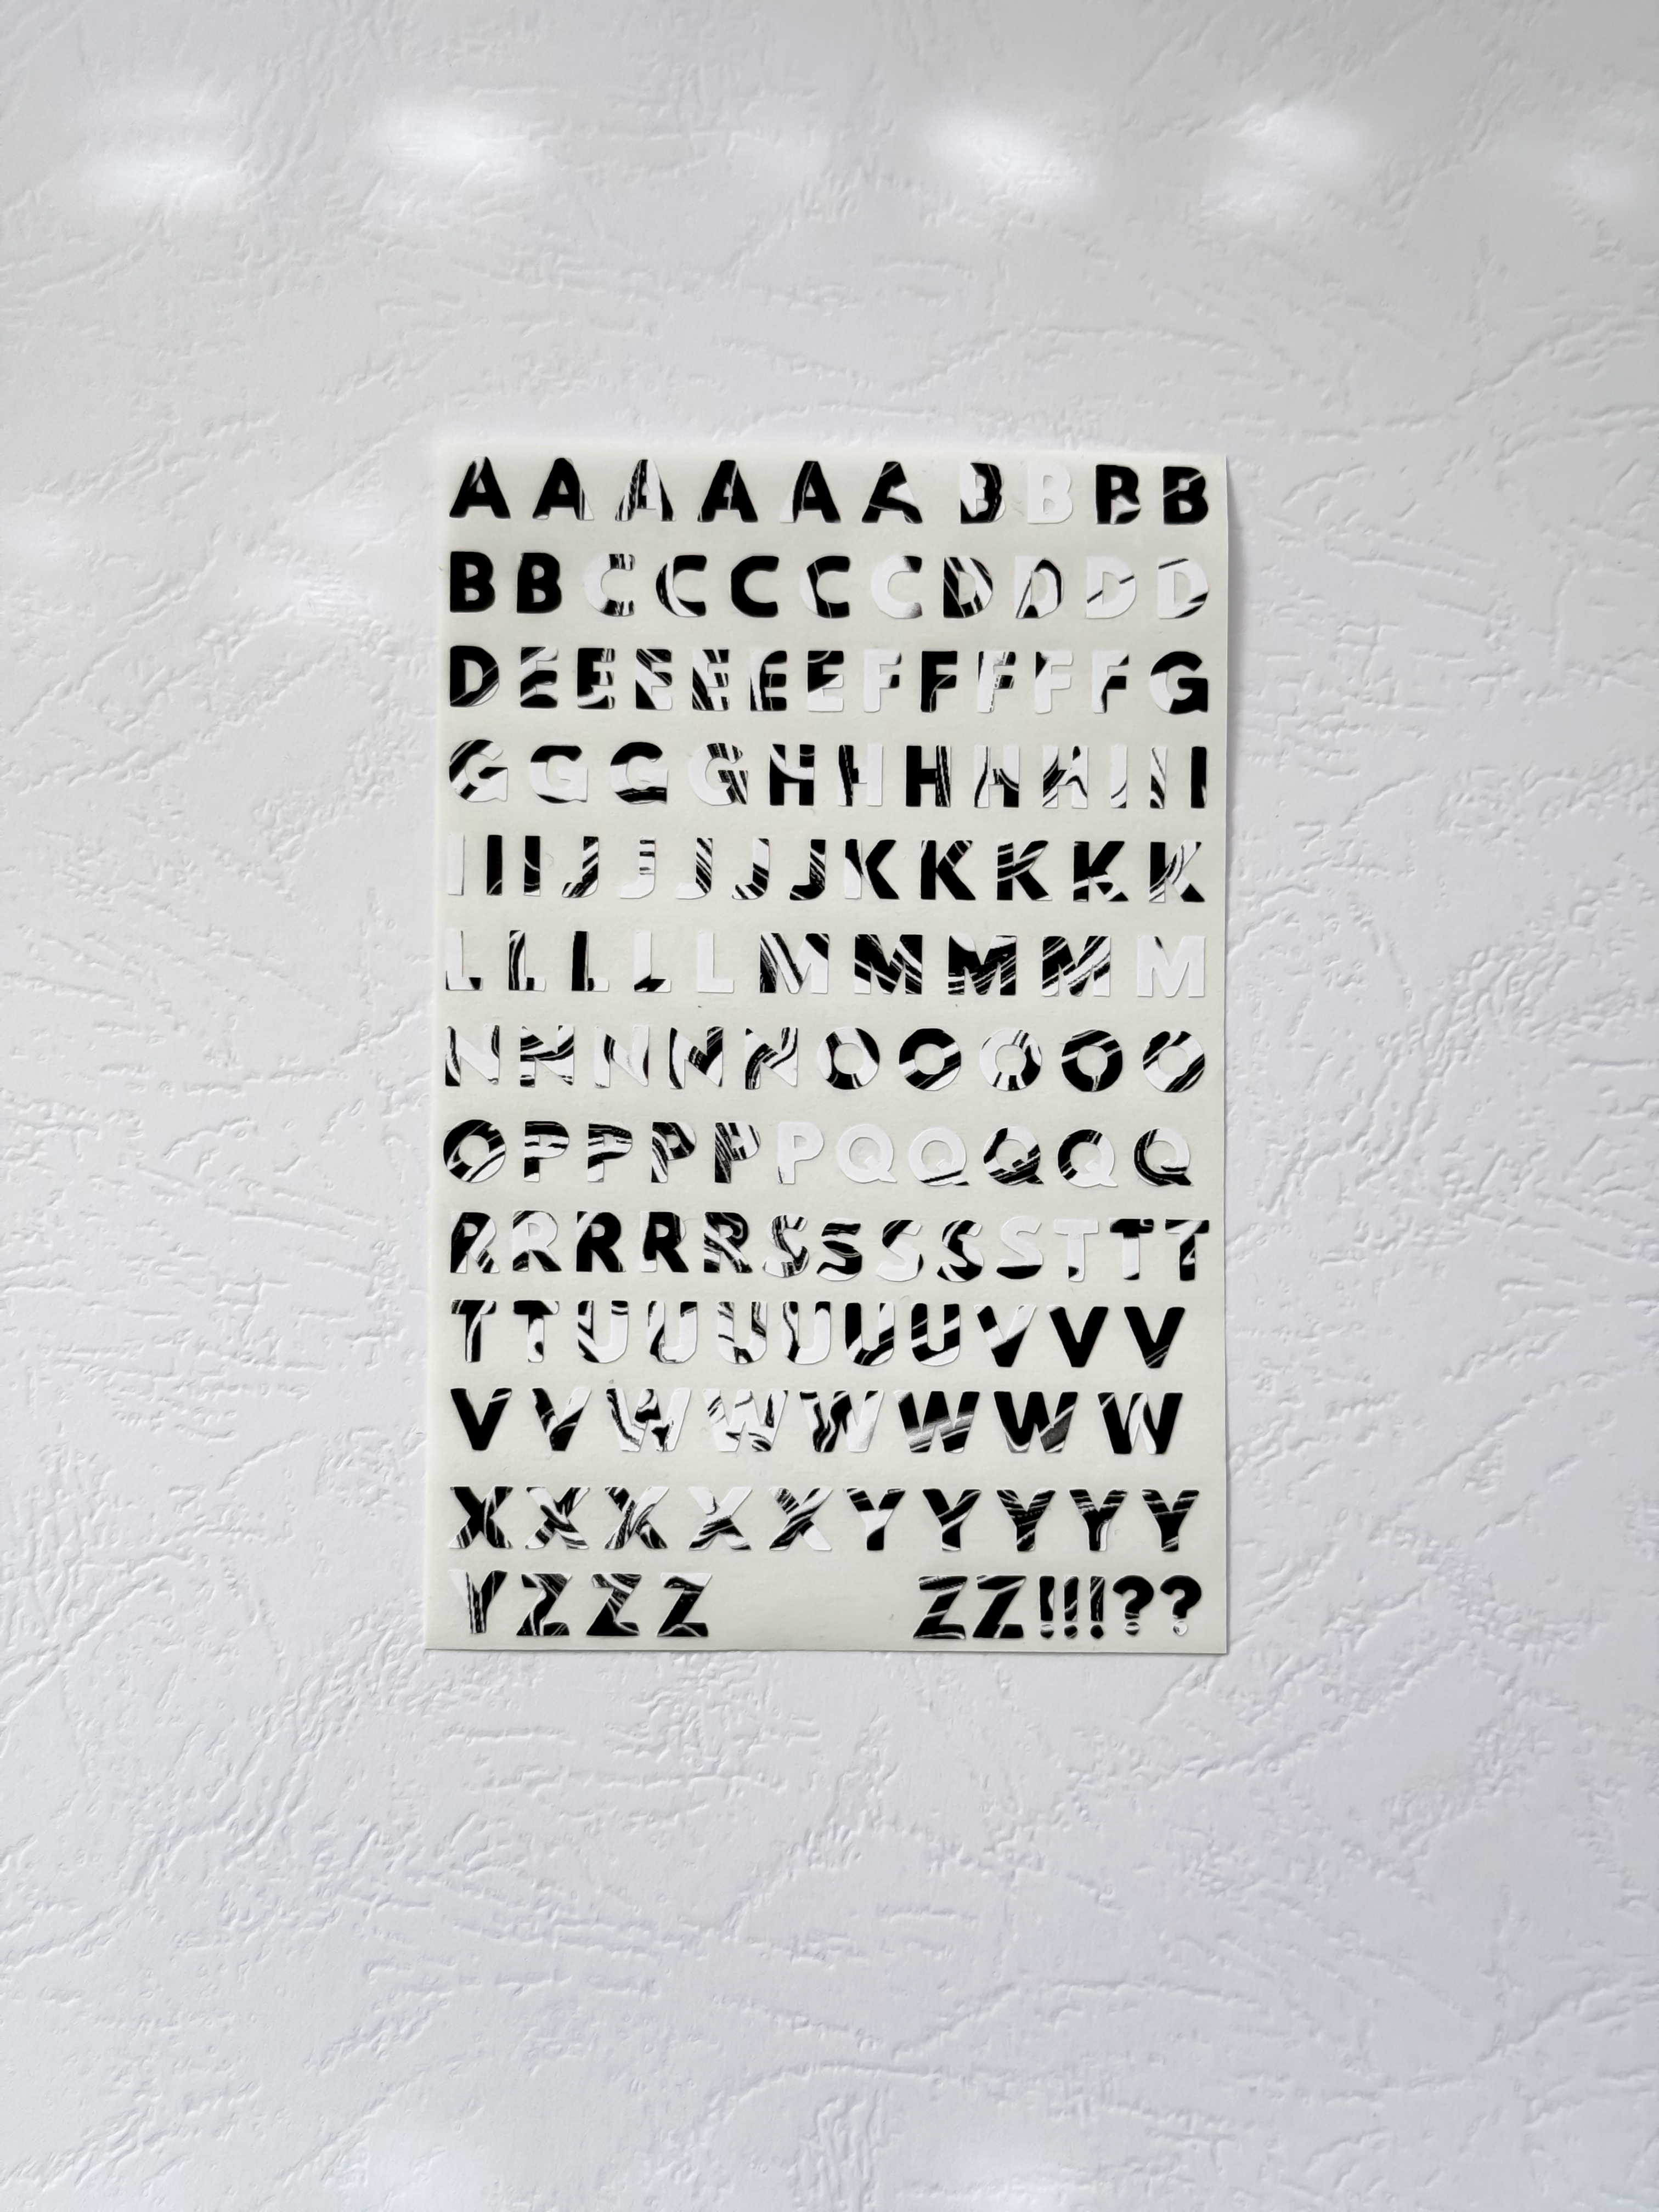 A A A A A A B B B B
B B C C C C C D D D D
D E E E E E E F F F F F G
G G G G H H H H H I I I
I I I J J J J J K K K K K
L L L L L M M M M M
N N N N N O O O O O
O P P P P P Q Q Q Q Q
R R R R R S S S S S T T T
T T U U U U U U V V V
V V W W W W W W
X X X X X Y Y Y Y Y
Y Z Z Z Z Z ! ! ! ? ?